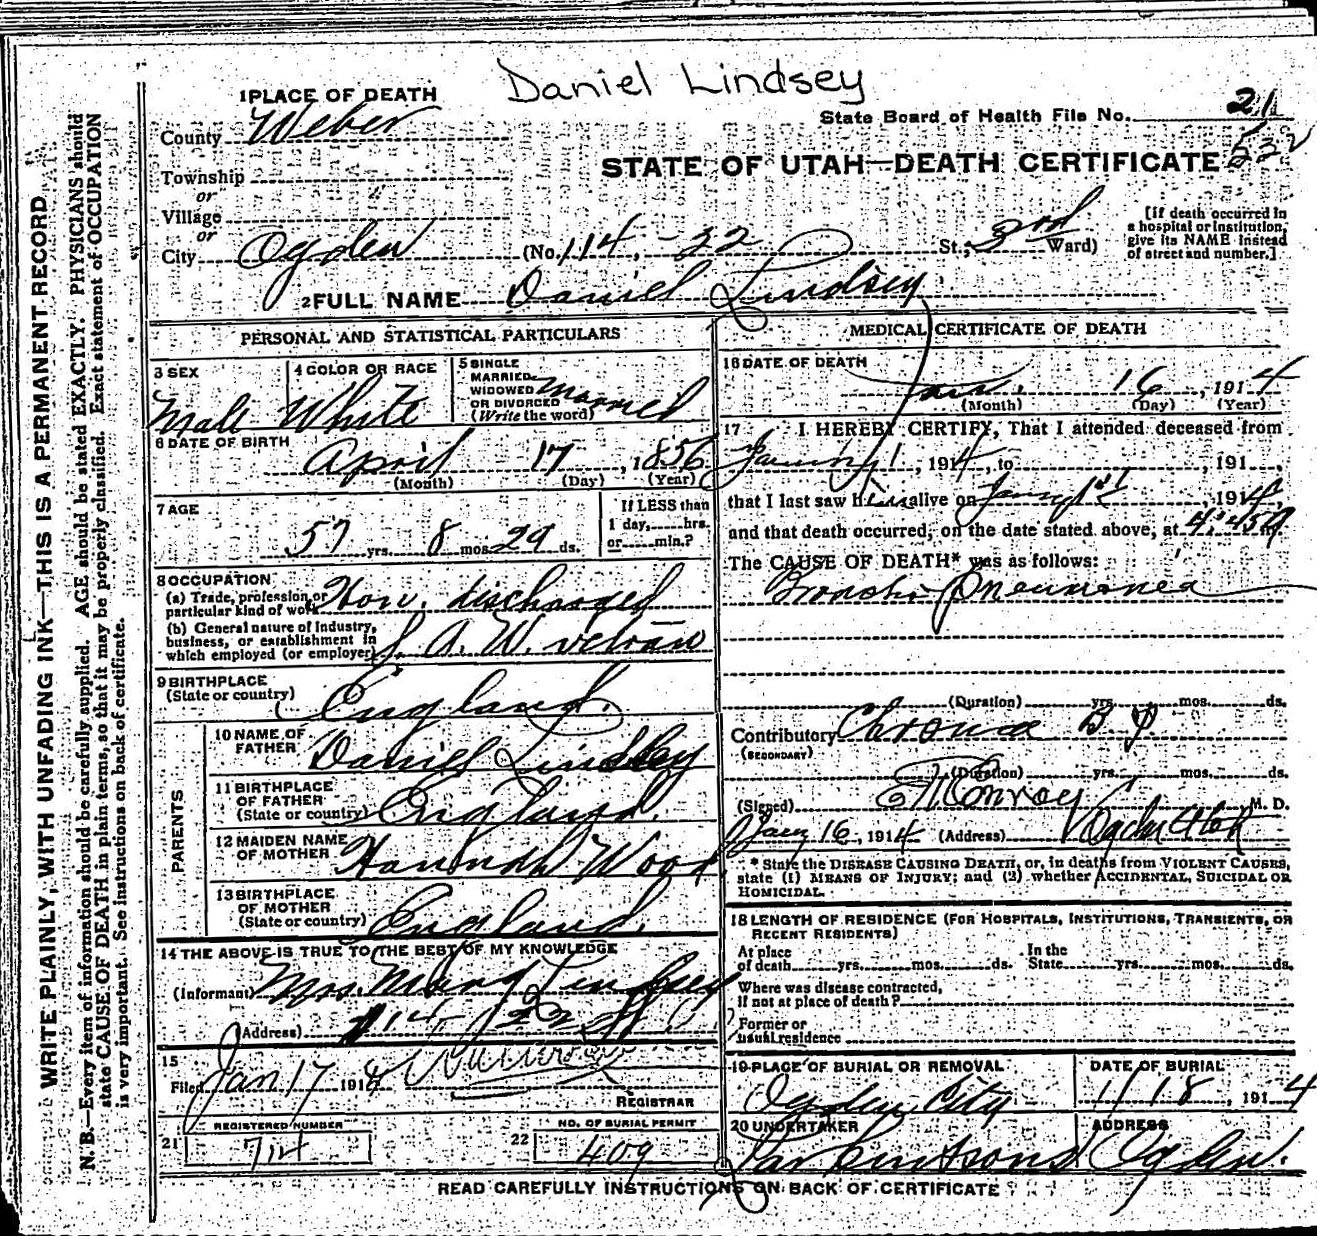 Daniel Lindsey
1 PLACE OF DEATH
County Weber
State Board of Health File No. 21
532
STATE OF UTAH—DEATH CERTIFICATE
Township
or
Village
or
City Ogden (No. 114, -22 St.; 3rd Ward)
[If death occurred in
a hospital or institution,
give its NAME instead
of street and number.]
2 FULL NAME Daniel Lindsey
PERSONAL AND STATISTICAL PARTICULARS
3 SEX
Male
4 COLOR OR RACE
White
5 SINGLE
MARRIED
WIDOWED
OR DIVORCED
(Write the word)
Married
6 DATE OF BIRTH
April 17, 1856
(Month) (Day) (Year)
7 AGE
57 yrs. 8 mos. 29 ds.
If LESS than
1 day, hrs.
or min.?
8 OCCUPATION
(a) Trade, profession, or
particular kind of work Hon. discharged
(b) General nature of industry,
business, or establishment in
which employed (or employer) A. W. vetran
9 BIRTHPLACE
(State or country) England.
PARENTS
10 NAME OF
FATHER Daniel Lindsley
11 BIRTHPLACE
OF FATHER
(State or country) England.
12 MAIDEN NAME
OF MOTHER Hannah Wood
13 BIRTHPLACE
OF MOTHER
(State or country) England.
14 THE ABOVE IS TRUE TO THE BEST OF MY KNOWLEDGE
(Informant) Mrs. Mary Lindsey
(Address) 114- 22 St
15
Filed Jan 17 1914
REGISTRAR
REGISTERED NUMBER
21 714
NO. OF BURIAL PERMIT
22 409
MEDICAL CERTIFICATE OF DEATH
16 DATE OF DEATH
Jan. 16, 1914
(Month) (Day) (Year)
17 I HEREBY CERTIFY, That I attended deceased from
1, 1914, to , 191
that I last saw him alive on 1914
and that death occurred, on the date stated above, at 4:45
The CAUSE OF DEATH* was as follows:
Broncho Pneumonea
(Duration) yrs. mos. ds.
Contributory
(SECONDARY)
(Duration) yrs. mos. ds.
(Signed) Conroy M. D.
Jany 16, 1914 (Address) Ogden Utah
* State the DISEASE CAUSING DEATH, or, in deaths from VIOLENT CAUSES,
state (1) MEANS OF INJURY; and (2) whether ACCIDENTAL, SUICIDAL OR
HOMICIDAL.
18 LENGTH OF RESIDENCE (FOR HOSPITALS, INSTITUTIONS, TRANSIENTS, OR
RECENT RESIDENTS)
At place
of death yrs. mos. ds.
In the
State yrs. mos. ds.
Where was disease contracted,
if not at place of death?
Former or
usual residence
19 PLACE OF BURIAL OR REMOVAL
Ogden City
DATE OF BURIAL
1/18, 1914
20 UNDERTAKER
Larkin & Sons
ADDRESS
Ogden.
READ CAREFULLY INSTRUCTIONS ON BACK OF CERTIFICATE
WRITE PLAINLY, WITH UNFADING INK—THIS IS A PERMANENT RECORD
N. B.—Every item of information should be carefully supplied. AGE should be stated EXACTLY. PHYSICIANS should
state CAUSE OF DEATH in plain terms, so that it may be properly classified. Exact statement of OCCUPATION
is very important. See instructions on back of certificate.